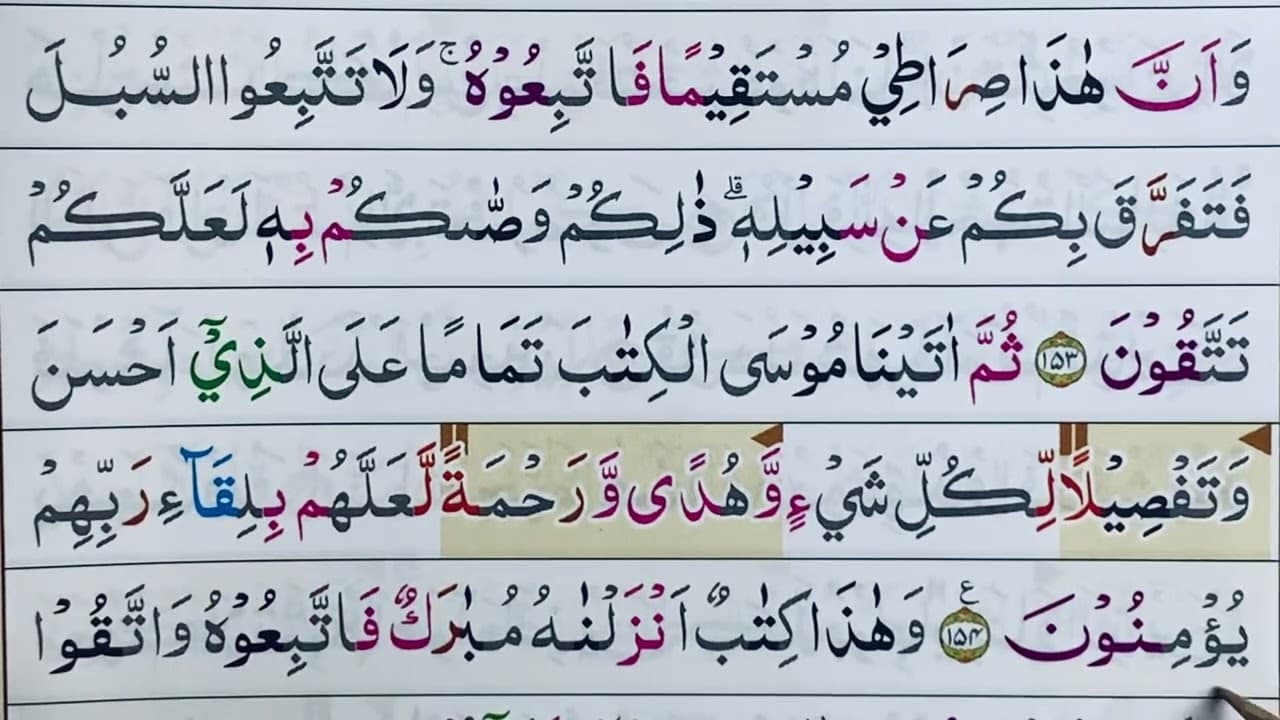 وَاَنَّ هٰذَا صِرَاطِيْ مُسْتَقِيْمًا فَاتَّبِعُوْهُ ۚ وَلَا تَتَّبِعُوا السُّبُلَ
فَتَفَرَّقَ بِكُمْ عَنْ سَبِيْلِهٖ ۗ ذٰلِكُمْ وَصّٰىكُمْ بِهٖ لَعَلَّكُمْ
تَتَّقُوْنَ ۝١٥٣ ثُمَّ اٰتَيْنَا مُوْسَى الْكِتٰبَ تَمَامًا عَلَى الَّذِيْۤ اَحْسَنَ
وَتَفْصِيْلًا لِّكُلِّ شَيْءٍ وَّهُدًى وَّرَحْمَةً لَّعَلَّهُمْ بِلِقَآءِ رَبِّهِمْ
يُؤْمِنُوْنَ ۝١٥٤ ع وَهٰذَا كِتٰبٌ اَنْزَلْنٰهُ مُبٰرَكٌ فَاتَّبِعُوْهُ وَاتَّقُوْا